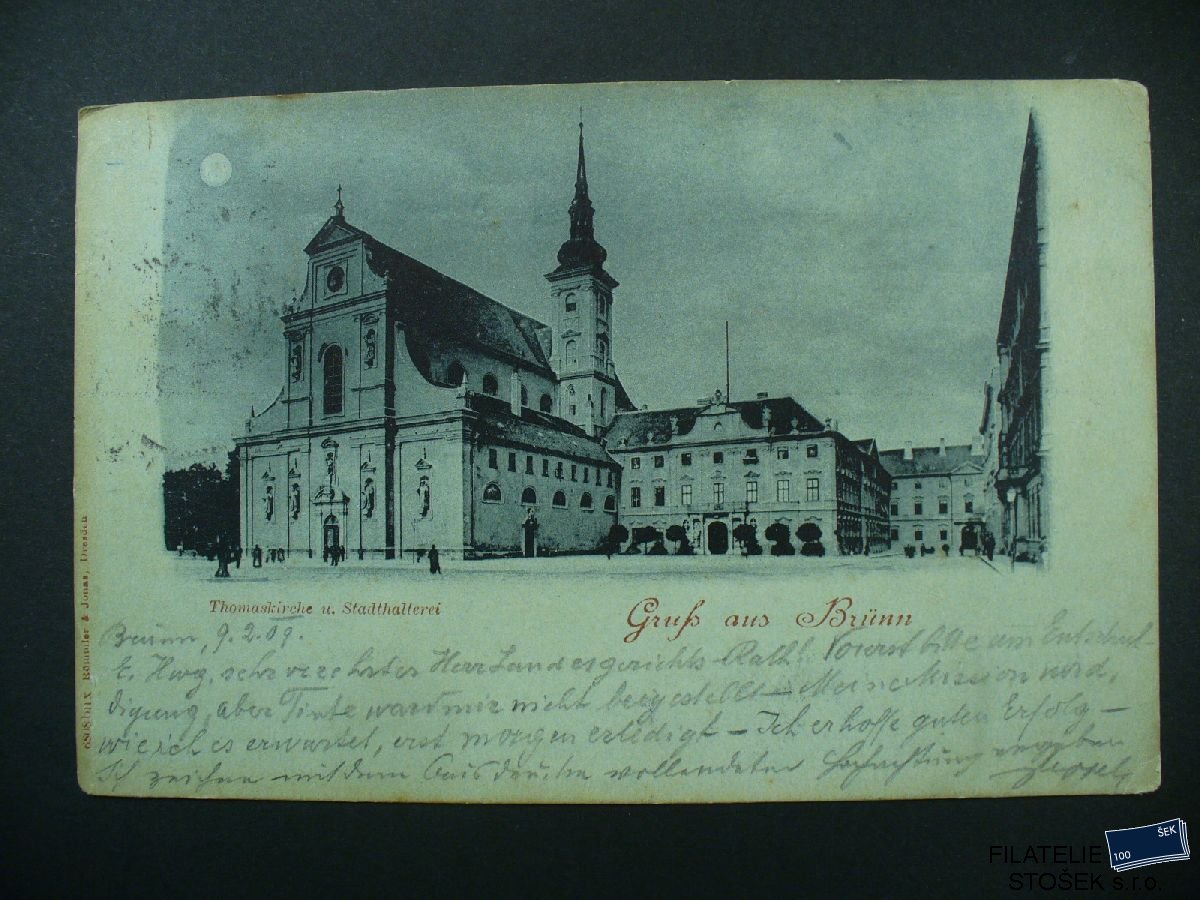 Thomaskirche u. Stadthalterei
Gruß aus Brünn
Römmler & Jonas, Dresden
Brünn, 9.2.09.
E. Hwg, sehr verehrter Herr Landesgerichts-Rath! Vorerst bitte um Entschul
digung, aber Tinte ward mir nicht beigestellt – Meine Mission wird,
wie ich es erwartet, erst morgen erledigt – Ich erhoffe guten Erfolg –
Ich zeichne mit dem Ausdrucke vollendeter Hochachtung ergeben
FILATELIE
STOŠEK s.r.o.
100
ŠEK